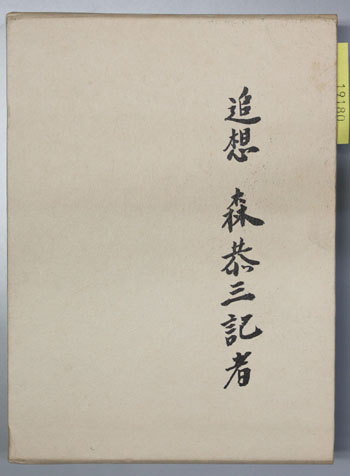 追想 森恭三記者
19180